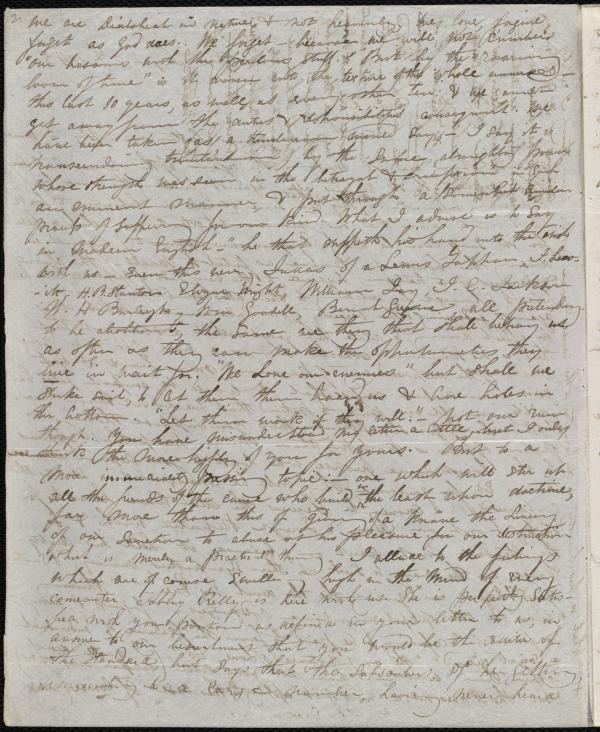 2 we are diabolical in nature & not heavenly. We love, forgive,
forget as God does. We forget - because we will not cumber
our bosoms with the perilous stuff. But by the "roaring
loom of time" is it woven into the texture of the whole
this last 10 years, as well as every other ten: & we cannot
get away from the duties & responsibilities consequent. We
have been taken past a say - I say it
by the same almighty power
whose strength was seen in the &
an eminent manner, & put through a
of suffering for our kind. What I advise is to say
in modern English - "he that suppeth his hand into the dish
with us - even this very Judas of a Lewis Tappan, J. Leav-
itt, H. B. Stanton Elizur Wright, William Jay, J. C. Jackson
W. H. Burleigh, Wm Goodell, all pretending
to be abolitionists, the same are they that shall betray us
as often as they can make the opportunities they
lie in wait for. "We love our enemies" but shall we
to let them harry us & have holes in
the bottom. "Let them work if they will" - not our ruin
though. You have misunderstood my letter a little, but I only
think the more highly of you for yours. But to a
more immediately pressing topic: - one which will stir up
all the friends of the cause who hold in the least your doctrine,
far more than this of giving of a knave the
of our sanction to abuse at his pleasure for our destruction
which is merely a practical thing. I allude to the feelings
which are of course swelling high in the mind of every
comeouter. Abby Kelley is here with us. She is perfectly satis-
fied with your position as defined in your letter to us, in
answer to our beseechment that you would be the editor of
the Standard, but says that the subscribers, of her getting,
a large number, having never heard